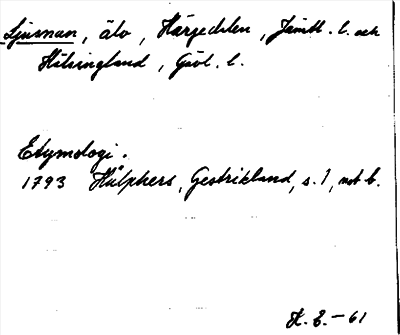 Ljusnan, älv, Härjedalen, Jämtl. l. och
Hälsingland, Gävl. l.
Etymologi.
1793 Hülphers, Gestrikland, s. 1, not b.
H. E. -61